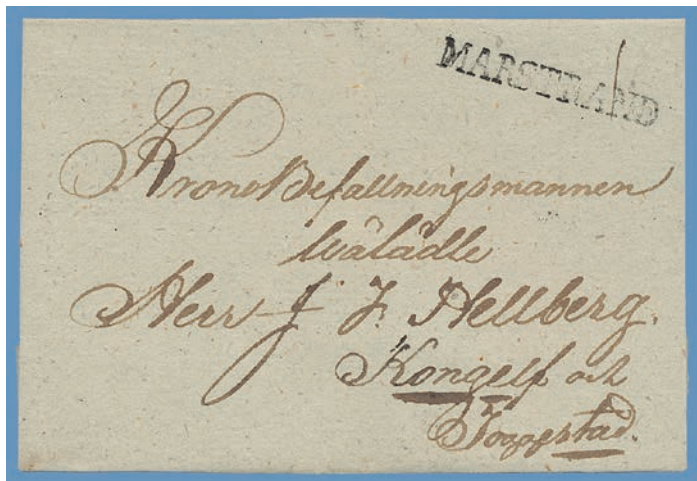 MARSTRAND
KronoBefallningsmannen
Wälädle
Herr J. F. Hellberg.
Kongelf och